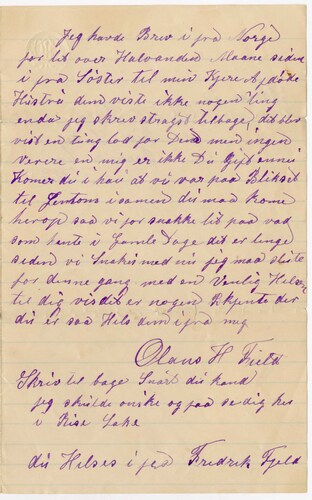 Jeg havde Brev i fra Norge
for lit over Halvanden Maane siden
i fra Søster til min Kjere Afdøde
Hustru dem viste ikke nogen ting
enda jeg skrev stragst tilbage, dit blev
vist en ting for Dem men ingen
verere en mig er ikke Du Gift ennu
Komer du i hau at vi var paa
til i samen du maa kome
herop saa vi for snakke lit paa vad
som hente i Gamle Dage dit er lenge
siden vi Snakis med nu jeg maa slute
for denne gang med en Venlig Helsen
til dig vis dit er nogen Bekjente der
du er saa Hils dem i fra mig
Olaus H Field
Skriv til bage Snart du kand
jeg skulde onske og faa se dig her
i Rise Lake
du Helses i fra Fredrik Fjeld